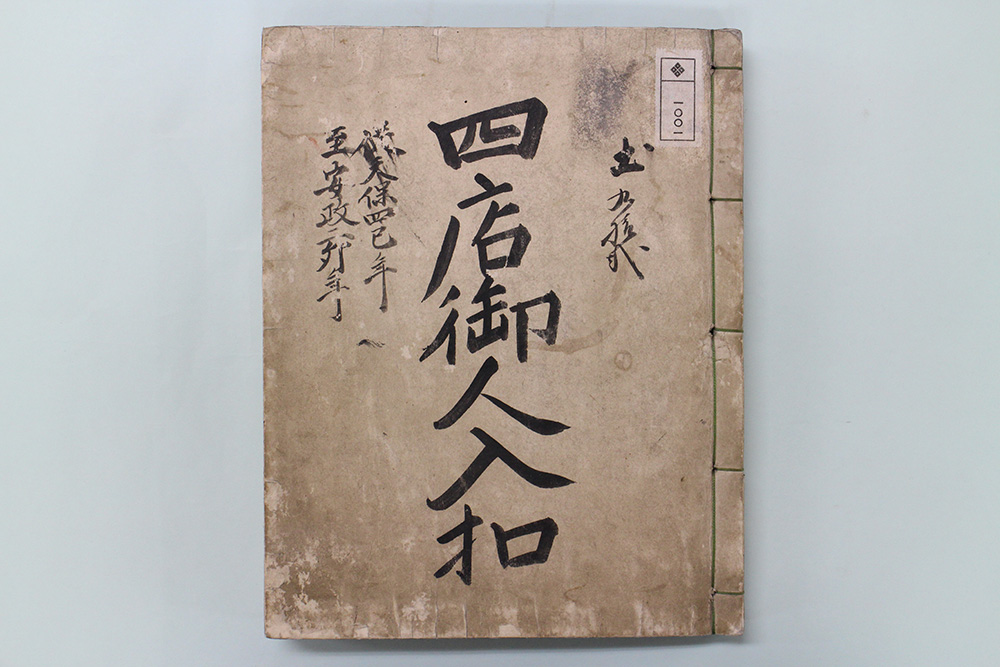 一〇〇一
四店御人入扣
従天保四巳年
至安政二卯年